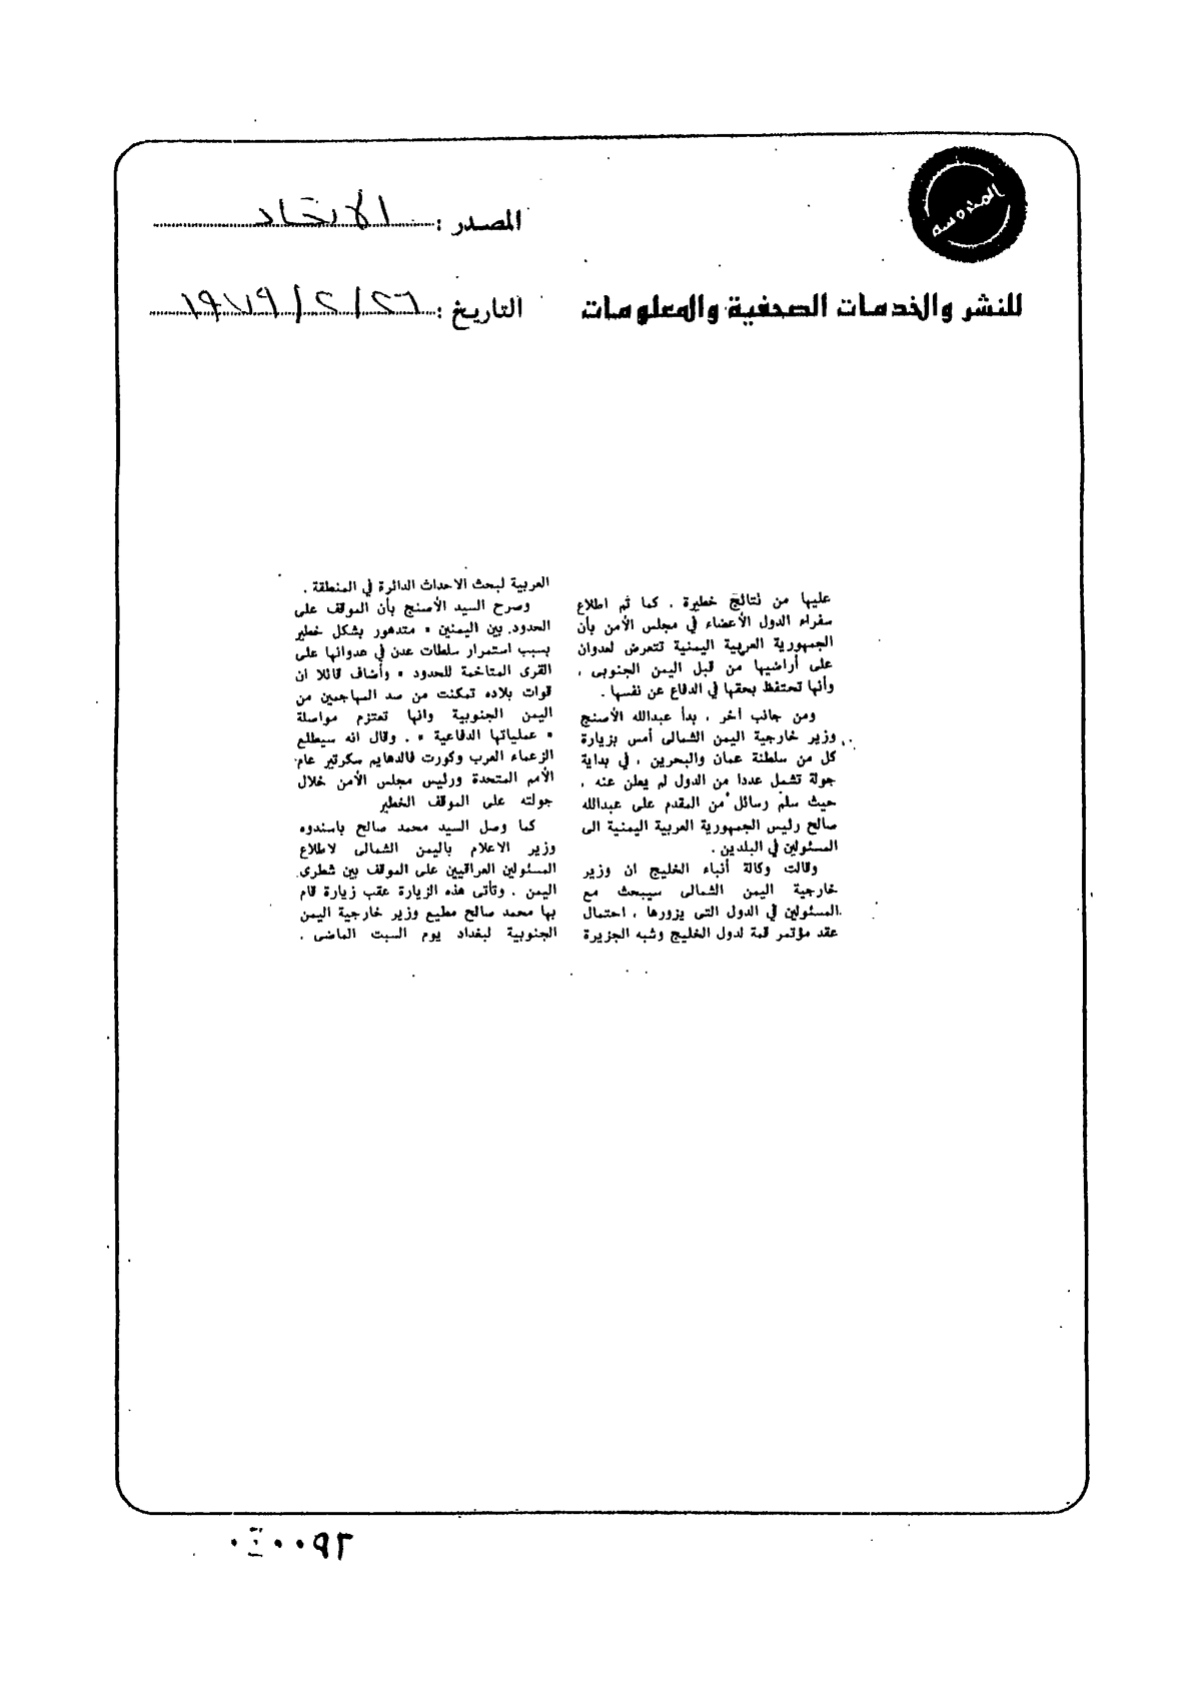 المصدر : الاتحاد
للنشر والخدمات الصحفية والمعلومات
التاريخ : ٢٦/٢/١٩٧٩
عليها من نتائج خطيرة . كما تم اطلاع
سفراء الدول الأعضاء في مجلس الأمن بأن
الجمهورية العربية اليمنية تتعرض لعدوان
على أراضيها من قبل اليمن الجنوبى ،
وأنها تحتفظ بحقها في الدفاع عن نفسها .
ومن جانب أخر ، بدأ عبدالله الأصنج
وزير خارجية اليمن الشمالى أمس بزيارة
كل من سلطنة عمان والبحرين ، في بداية
جولة تشمل عددا من الدول لم يعلن عنه ،
حيث سلم رسائل من المقدم على عبدالله
صالح رئيس الجمهورية العربية اليمنية الى
المسئولين في البلدين .
وقالت وكالة أنباء الخليج ان وزير
خارجية اليمن الشمالى سيبحث مع
المسئولين في الدول التى يزورها ، احتمال
عقد مؤتمر قمة لدول الخليج وشبه الجزيرة
العربية لبحث الاحداث الدائرة في المنطقة .
وصرح السيد الأصنج بأن الموقف على
الحدود بين اليمنين « متدهور بشكل خطير
بسبب استمرار سلطات عدن في عدوانها على
القرى المتاخمة للحدود » وأضاف قائلا ان
قوات بلاده تمكنت من صد المهاجمين من
اليمن الجنوبية وانها تعتزم مواصلة
« عملياتها الدفاعية » . وقال انه سيطلع
الزعماء العرب وكورت فالدهايم سكرتير عام
الأمم المتحدة ورئيس مجلس الأمن خلال
جولته على الموقف الخطير
كما وصل السيد محمد صالح باسندوه
وزير الاعلام باليمن الشمالى لاطلاع
المسئولين العراقيين على الموقف بين شطرى
اليمن . وتأتى هذه الزيارة عقب زيارة قام
بها محمد صالح مطيع وزير خارجية اليمن
الجنوبية لبغداد يوم السبت الماضى .